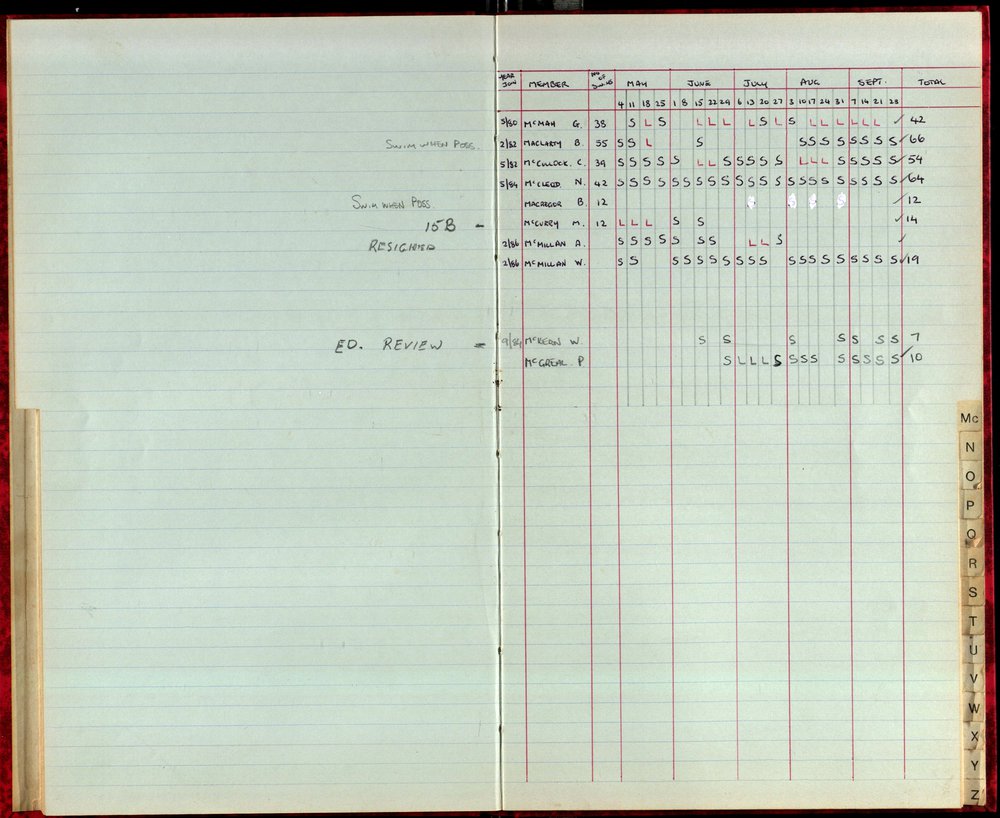 YEAR JOIN MEMBER NO OF SWIMS MAY JUNE JULY AUG SEPT. TOTAL
4 11 18 25 1 8 15 22 29 6 13 20 27 3 10 17 24 31 7 14 21 28
5/80 McMAH G. 38 S L S L L L L S L S L L L L L L ✓ 42
SWIM WHEN POSS. 2/82 MACLARTY B. 55 S S L S S S S S S S S S ✓ 66
5/82 McCULLOCK. C. 39 S S S S S L L S S S S S L L L S S S S S ✓ 54
5/84 McCLEOD N. 42 S S S S S S S S S S S S S S S S S S S S S S ✓ 64
SWIM WHEN POSS MACGREGOR B. 12 ✓ 12
15B - McCURRY M. 12 L L L S S ✓ 14
RESIGNED 2/86 McMILLAN A. S S S S S S S L L S ✓
2/86 McMILLAN W. S S S S S S S S S S S S S S S S S S S ✓ 19
ED. REVIEW - 9/84 McKEON W. S S S S S S S 7
McGREAL P S L L L S S S S S S S S S ✓ 10
Mc
N
O
P
Q
R
S
T
U
V
W
X
Y
Z